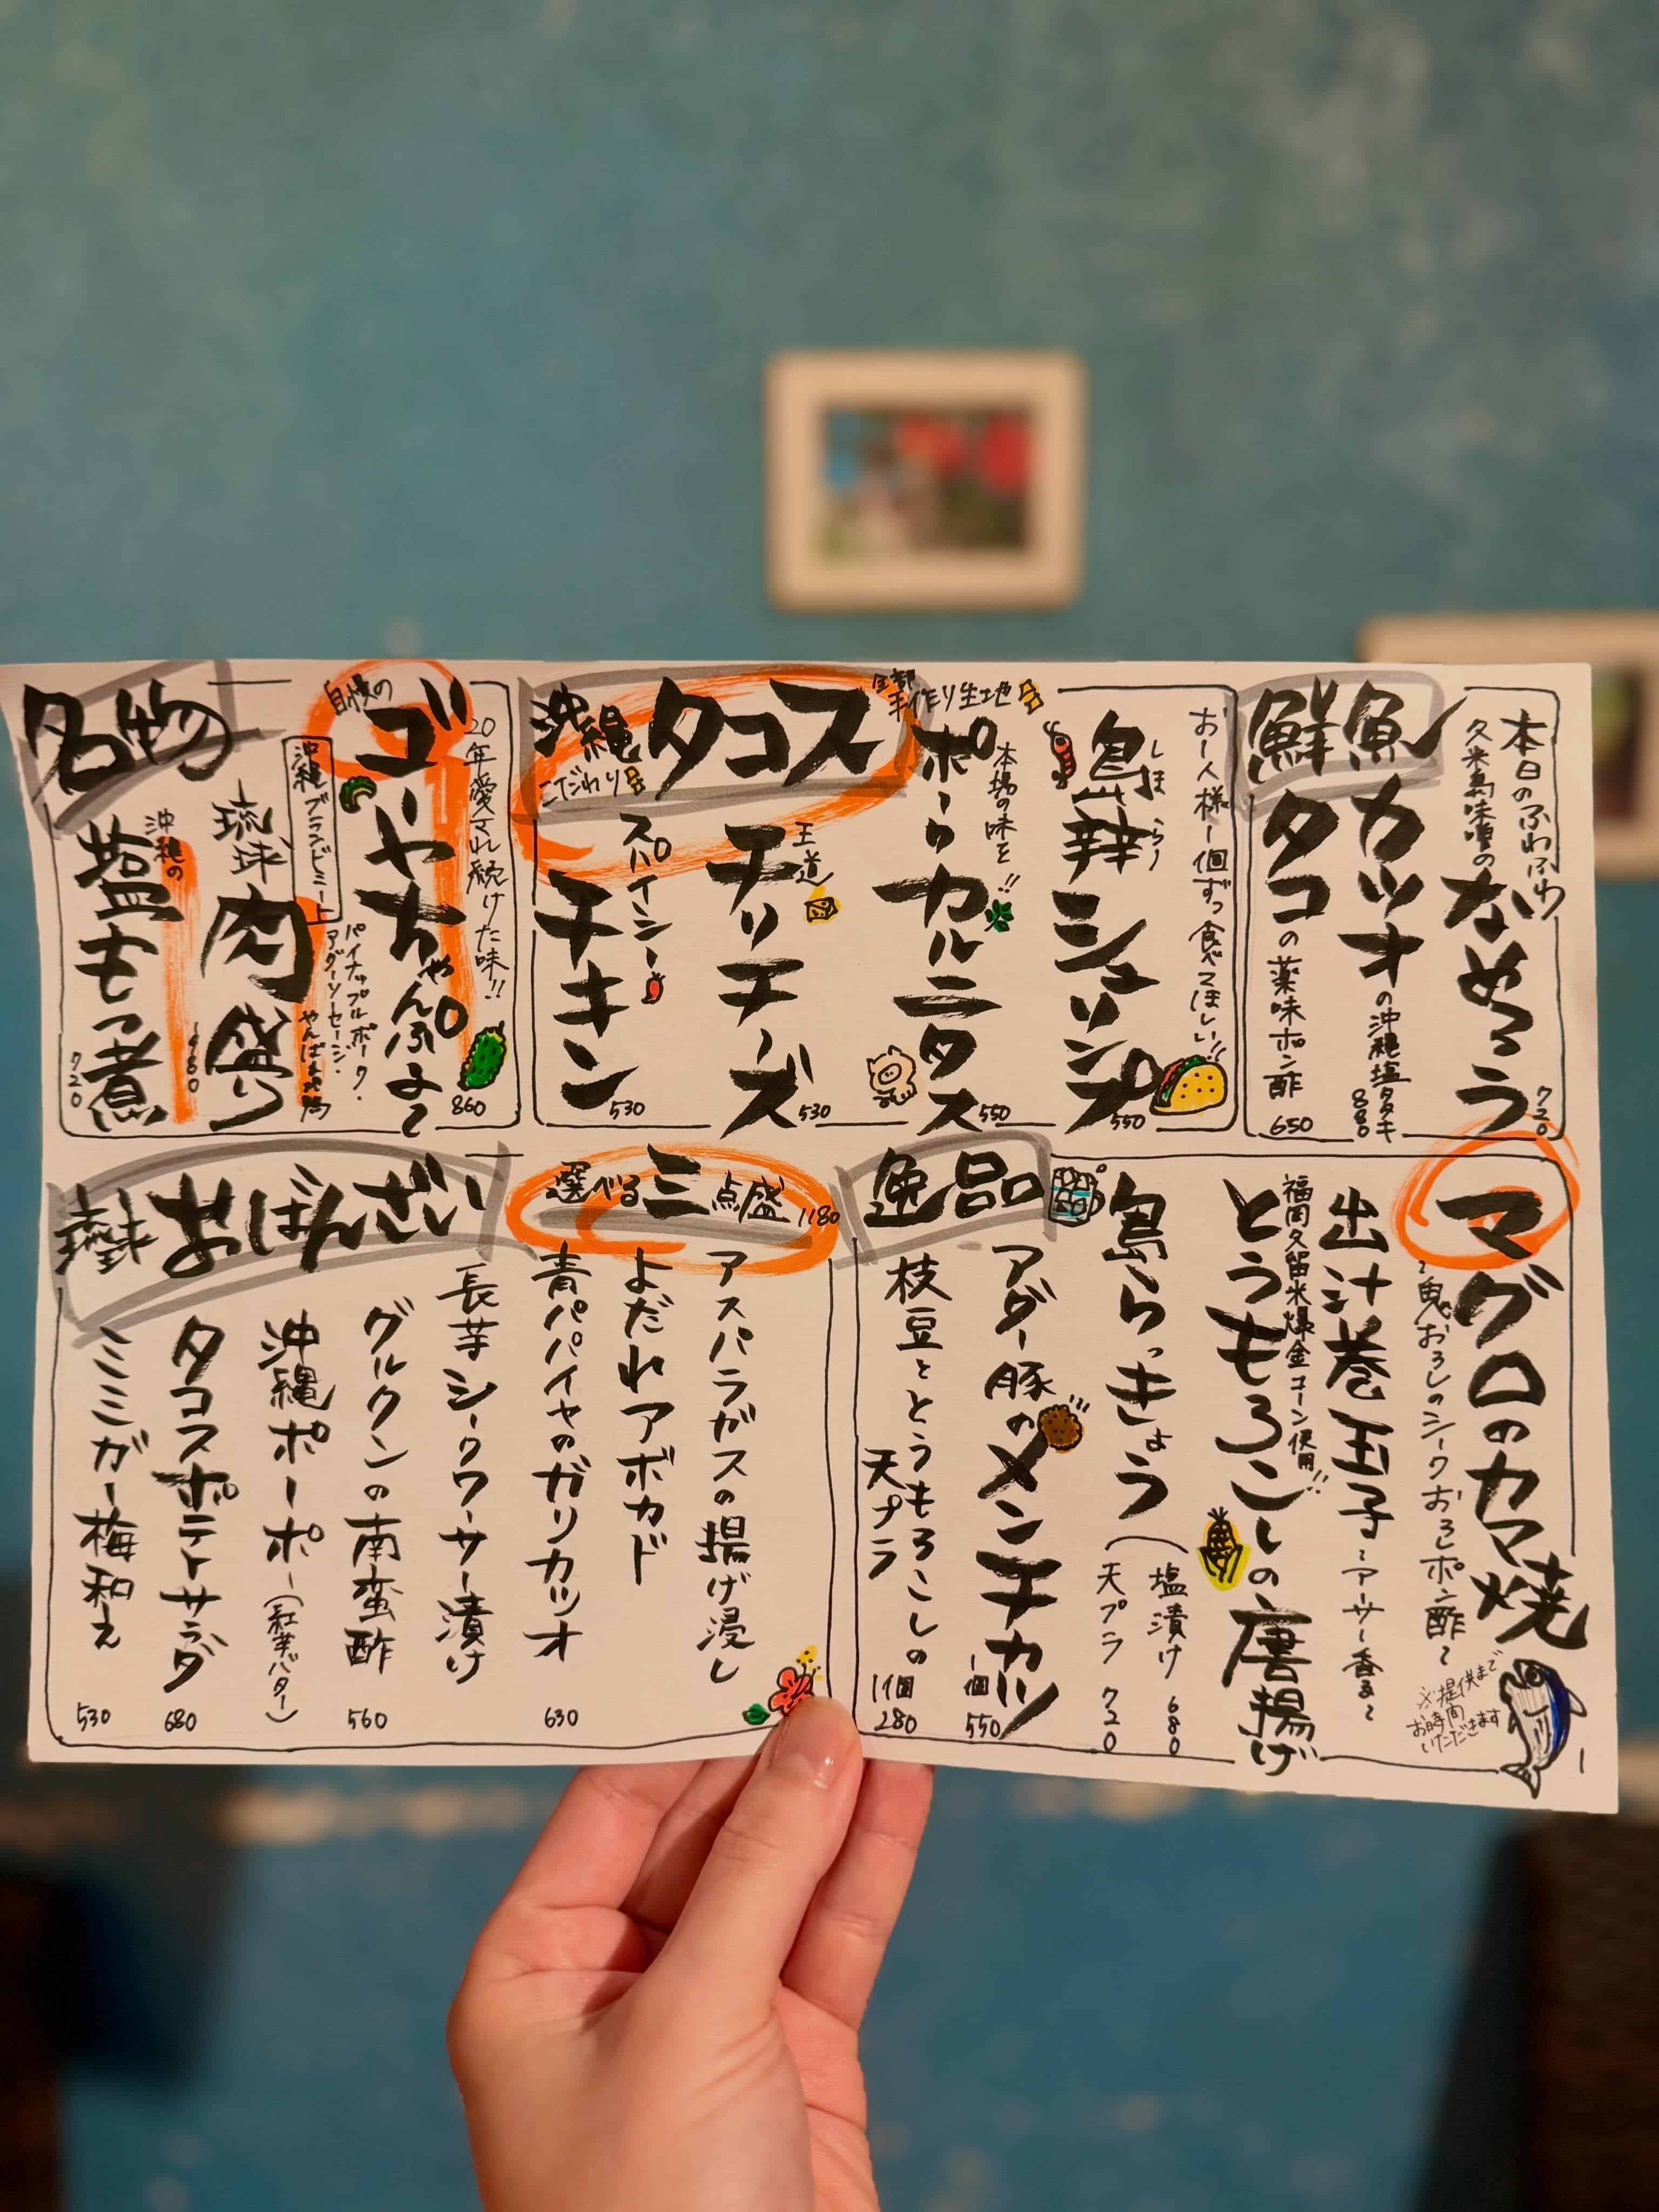 鮮魚
本日のふわふわ
久米島味噌の
なめろう
720
カツオの沖縄塩タタキ
880
タコの薬味ポン酢
650
沖縄タコス
こだわり
全部手作り生地
お一人様一個ずつ食べてほしい!!
島辣シュリンプ
しま らー
550
本場の味を!!
ポークカルニタス
550
王道
チリチーズ
530
スパイシー
チキン
530
名物
20年愛され続けた味!!
自慢の
ゴーやちゃんぷるて
860
沖縄ブランドミート
パイナップルポーク・
アグーソーセージ・
やんばる地鶏
琉球肉盛り
沖縄の
塩もつ煮
720
マグロのカマ焼
〜鬼おろしのシークおろしポン酢〜
※提供まで
お時間
いただきます
出汁巻玉子〜アーサー香る〜
福岡久留米爆金コーン使用!!
とうもろこしの唐揚げ
島らっきょう
塩漬け 680
天プラ 720
逸品
アグー豚のメンチカツ
1個
550
枝豆ととうもろこしの
天プラ
1個
280
選べる三点盛
1180
アスパラガスの揚げ浸し
よだれアボカド
青パパイヤのガリカツオ
630
琉球おばんざい
長芋シークワーサー漬け
グルクンの南蛮酢
560
沖縄ポーポー(紅芋バター)
タコスポテトサラダ
680
ミミガー梅和え
530